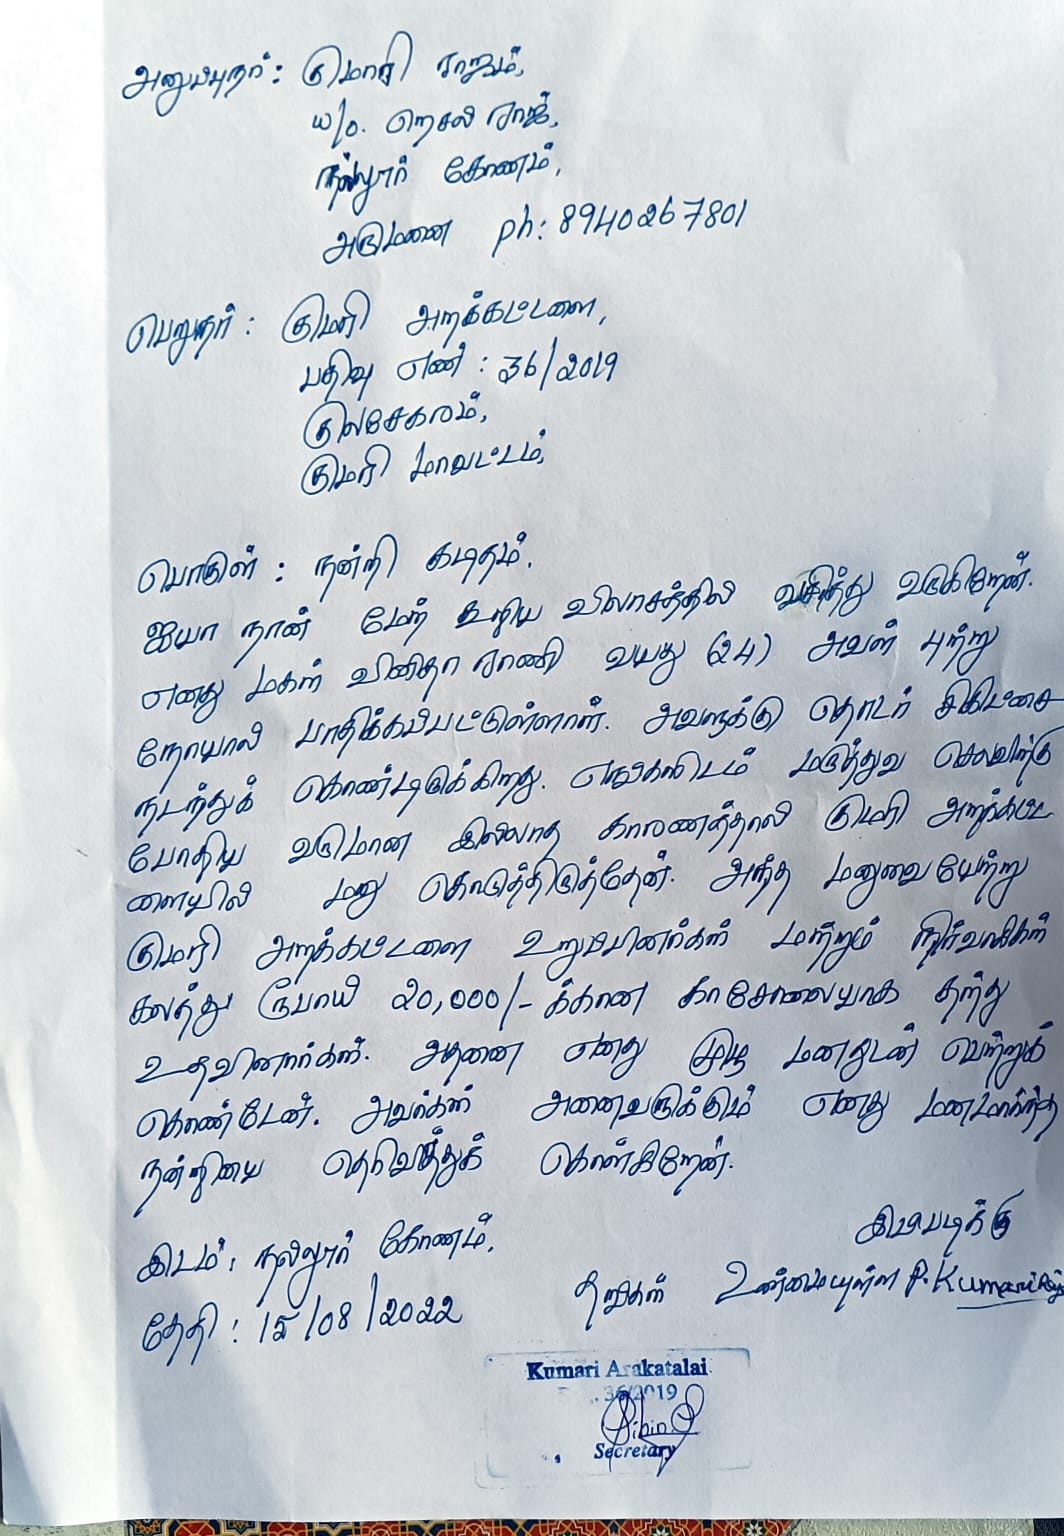 அனுப்புநர் : குமாரி ராஜம்,
W/o. செல்வராஜ்,
நல்லூர் கோணம்,
அருமனை ph: 8940267801
பெறுநர் : குமரி அறக்கட்டளை,
பதிவு எண் : 36/2019
குலசேகரம்,
குமரி மாவட்டம்,
பொருள் : நன்றி கடிதம்.
ஐயா நான் மேற் கூறிய விலாசத்தில் வசித்து வருகிறேன்.
எனது மகள் வினிதா ராணி வயது (24) அவள் புற்று
நோயால் பாதிக்கப்பட்டுள்ளாள். அவளுக்கு தொடர் சிகிட்சை
நடந்துக் கொண்டிருக்கிறது. எங்களிடம் மருத்துவ செலவிற்கு
போதிய வருமான இல்லாத காரணத்தால் குமரி அறக்கட்ட
ளையில் மனு கொடுத்திருந்தேன். அந்த மனுவையேற்று
குமரி அறக்கட்டளை உறுப்பினர்கள் மற்றும் நிர்வாகிகள்
கலந்து ரூபாய் 20,000/- க்கான காசோலையாக தந்து
உதவினார்கள். அதனை எனது முழு மனதுடன் பெற்றுக்
கொண்டேன். அவர்கள் அனைவருக்கும் எனது மனமார்ந்த
நன்றியை தெரிவித்துக் கொள்கிறேன்.
இடம் : நல்லூர் கோணம்.
தேதி : 15/08/2022
இப்படிக்கு
தங்கள் உண்மையுள்ள P. Kumari
Kumari Arakatalai
36/2019
Secretary